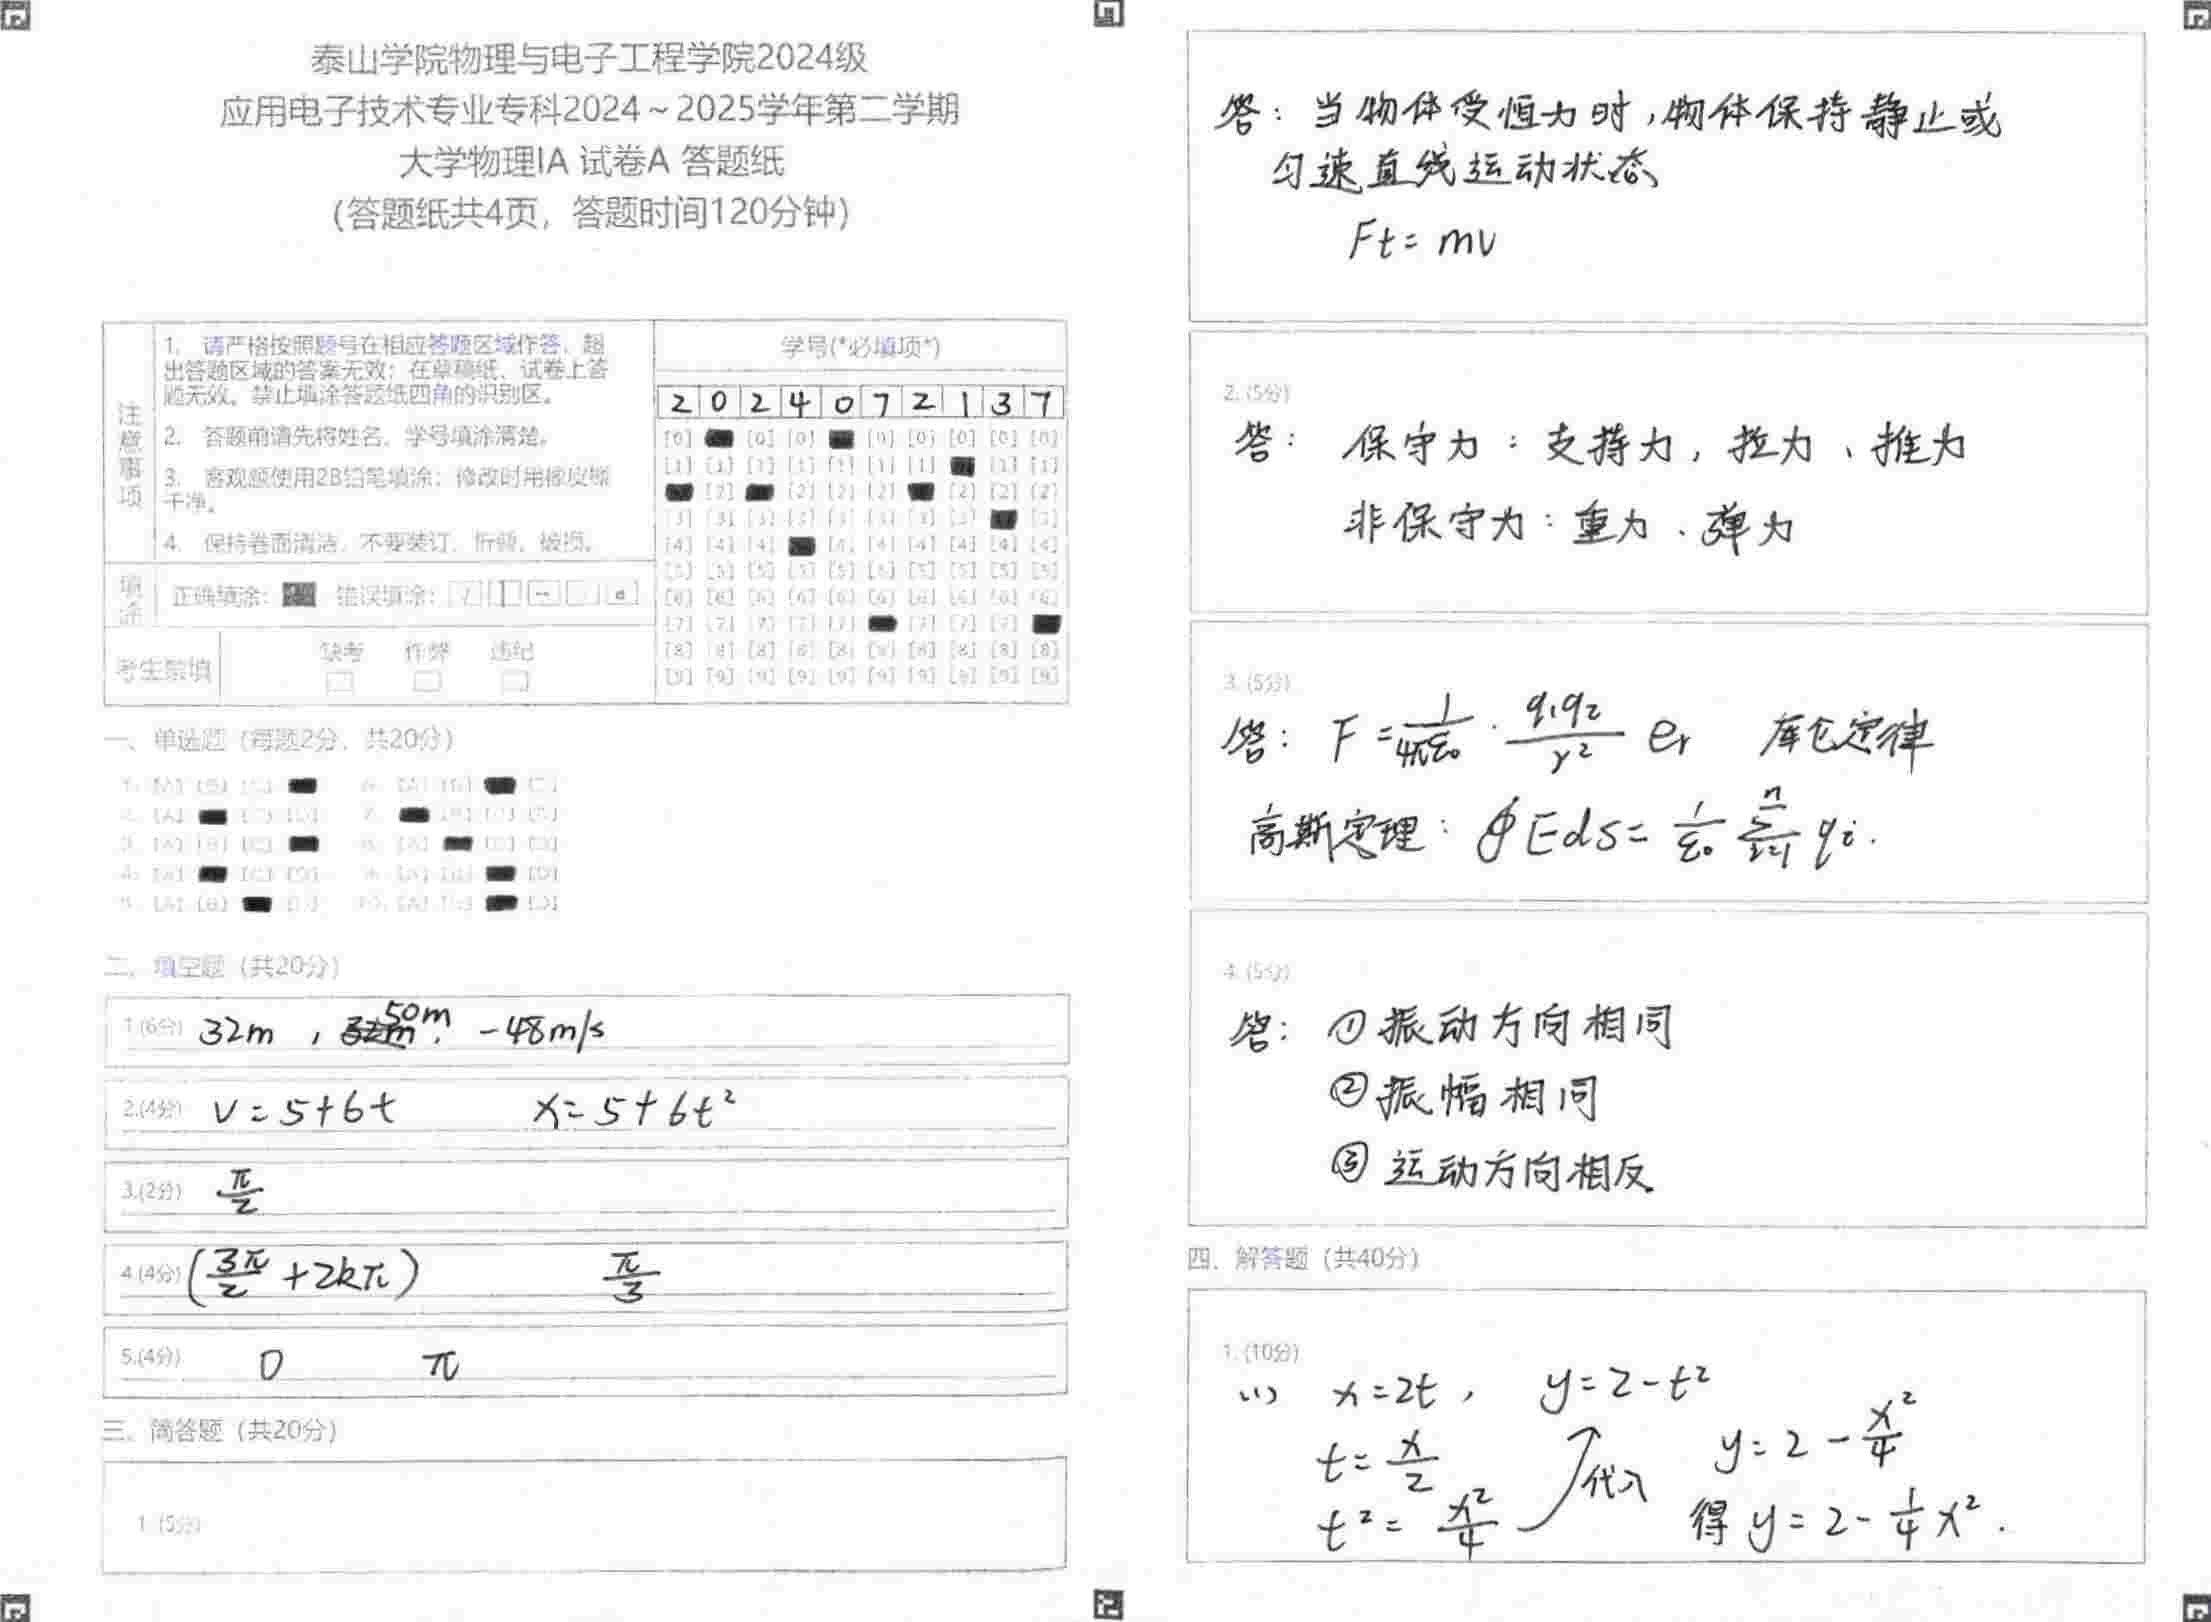 泰山学院物理与电子工程学院2024级
应用电子技术专业专科2024～2025学年第二学期
大学物理IA 试卷A 答题纸
(答题纸共4页，答题时间120分钟)
注意事项
1. 请严格按照题号在相应答题区域作答，超
出答题区域的答案无效；在草稿纸、试卷上答
题无效。禁止填涂答题纸四角的识别区。
2. 答题前请先将姓名、学号填涂清楚。
3. 客观题使用2B铅笔填涂；修改时用橡皮擦
干净。
4. 保持卷面清洁，不要装订、折叠、破损。
填涂 正确填涂： 错误填涂：
考生禁填 缺考 作弊 违纪
学号(*必填项*)
2 0 2 4 0 7 2 1 3 7
一、单选题（每题2分，共20分）
二、填空题（共20分）
1.(6分) 32m , 50m , -48m/s
2.(4分) v=5+6t x=5+6t²
3.(2分) π/2
4.(4分) (3π/2 +2kπ) π/3
5.(4分) 0 π
三、简答题（共20分）
1.(5分)
答：当物体受恒力时，物体保持静止或
匀速直线运动状态
Ft=mv
2.(5分)
答：保守力：支持力，拉力、推力
非保守力：重力、弹力
3.(5分)
答：F=1/4πε₀ · q₁q₂/r² er 库仑定律
高斯定理：∮Eds=1/ε₀ ∑ⁿᵢ₌₁ qi.
4.(5分)
答：①振动方向相同
②振幅相同
③运动方向相反
四、解答题（共40分）
1.(10分)
(1) x=2t， y=2-t²
t=x/2 y=2-x²/4
t²=x²/4 代入 得 y=2-1/4x².